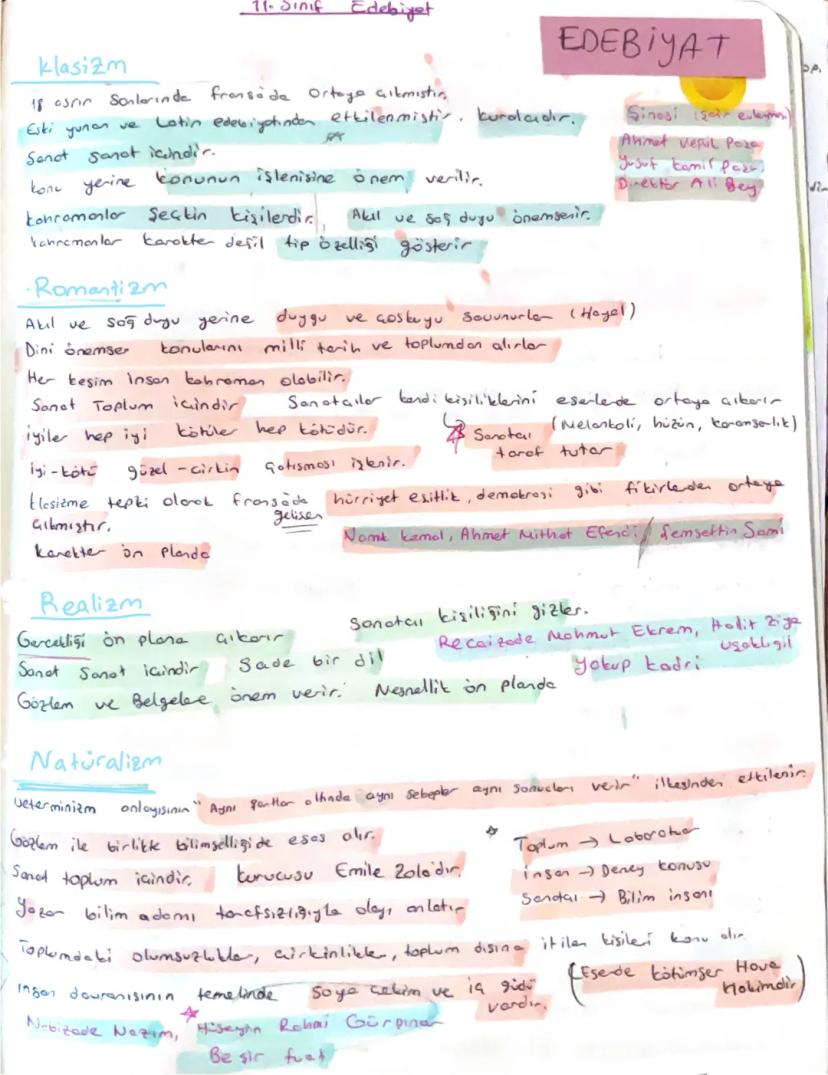 11. Sınıf Edebiyat
EDEBİYAT
Klasizm
18 asrın sonlarında fransada ortaya çıkmıştır.
Eski yunan ve Latin edebiyatından etkilenmiştir. kuralcıdır.
Sanat sanat içindir.
konu yerine konunun işlenişine önem verilir.
kahramanlar Seçkin kişilerdir. Akıl ve sağ duyu önemsenir.
kahramanlar karakter değil tip özelliği gösterir
Şinasi (şair evlenmesi)
Ahmet Vefik Paşa
Yusuf Kamil Paşa
Direktör Ali Bey
Romantizm
Akıl ve sağ duyu yerine duygu ve coşkuyu savunurlar (Hayal)
Dini önemser konularını milli tarih ve toplumdan alırlar
Her kesim insan kahraman olabilir.
Sanat Toplum içindir Sanatcılar kendi kişiliklerini eserlerde ortaya çıkarır
(Melankoli, hüzün, karamsarlık)
iyiler hep iyi kötüler hep kötüdür.
Sanatcı taraf tutar
iyi-kötü güzel-çirkin çatışması işlenir.
klasizme tepki olarak fransada gelişen hürriyet eşitlik, demokrasi gibi fikirlerden ortaya
çıkmıştır.
Namık kemal, Ahmet Mithat Efendi / Şemsettin Sami
karakter ön planda
Realizm
Sanatcı kişiliğini gizler.
Gerçekliği ön plana çıkarır
Recaizade Mahmut Ekrem, Halit Ziya
Uşaklıgil
Sanat Sanat içindir Sade bir dil
Yakup kadri
Gözlem ve Belgelere önem verir. Nesnellik ön planda
Natüralizm
Determinizm anlayışının "Aynı şartlar altında aynı sebepler aynı sonuçları verir" ilkesinden etkilenir.
Gözlem ile birlikte bilimselliğide esas alır.
Toplum → Laboratuar
Sanat toplum içindir. kurucusu Emile Zola'dır.
insan → Deney konusu
Sanatcı → Bilim insanı
Yazar bilim adamı tarafsızlığıyla olayı anlatır
Toplumdaki olumsuzluklar, çirkinlikler, toplum dışına itilen kişileri konu alır.
insan davranışının temelinde Soya çekim ve iç güdü
vardır.
(Eserde kötümser Hava
Hakimdir)
Nabizade Nazım, Hüseyin Rahmi Gürpınar
Beşir fuat